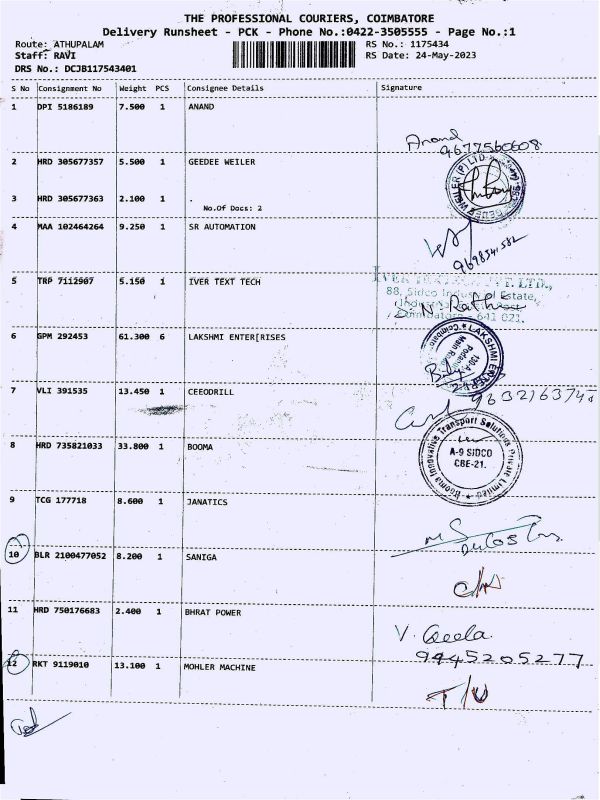 THE PROFESSIONAL COURIERS, COIMBATORE
Delivery Runsheet - PCK - Phone No.:0422-3505555 - Page No.:1
Route: ATHUPALAM
RS No.: 1175434
Staff: RAVI
RS Date: 24-May-2023
DRS No.: DCJB117543401
S No Consignment No Weight PCS Consignee Details Signature
1 DPI 5186189 7.500 1 ANAND
Anand
9677560608
2 HRD 305677357 5.500 1 GEEDEE WEILER
3 HRD 305677363 2.100 1 .
No.Of Docs: 2
4 MAA 102464264 9.250 1 SR AUTOMATION
5 TRP 7112907 5.150 1 IVER TEXT TECH
88, Sidco Industrial Estate,
Coimbatore - 641 021.
6 GPM 292453 61.300 6 LAKSHMI ENTER[RISES
LAKSHMI ENTER
7 VLI 391535 13.450 1 CEEODRILL
8 HRD 735821033 33.800 1 BOOMA
Booma Innovative Transport Solutions Private Limited
A-9 SIDCO
CBE-21.
9 TCG 177718 8.600 1 JANATICS
10 BLR 2100477052 8.200 1 SANIGA
11 HRD 750176683 2.400 1 BHRAT POWER
V. Geela.
9445205277
12 RKT 9119010 13.100 1 MOHLER MACHINE